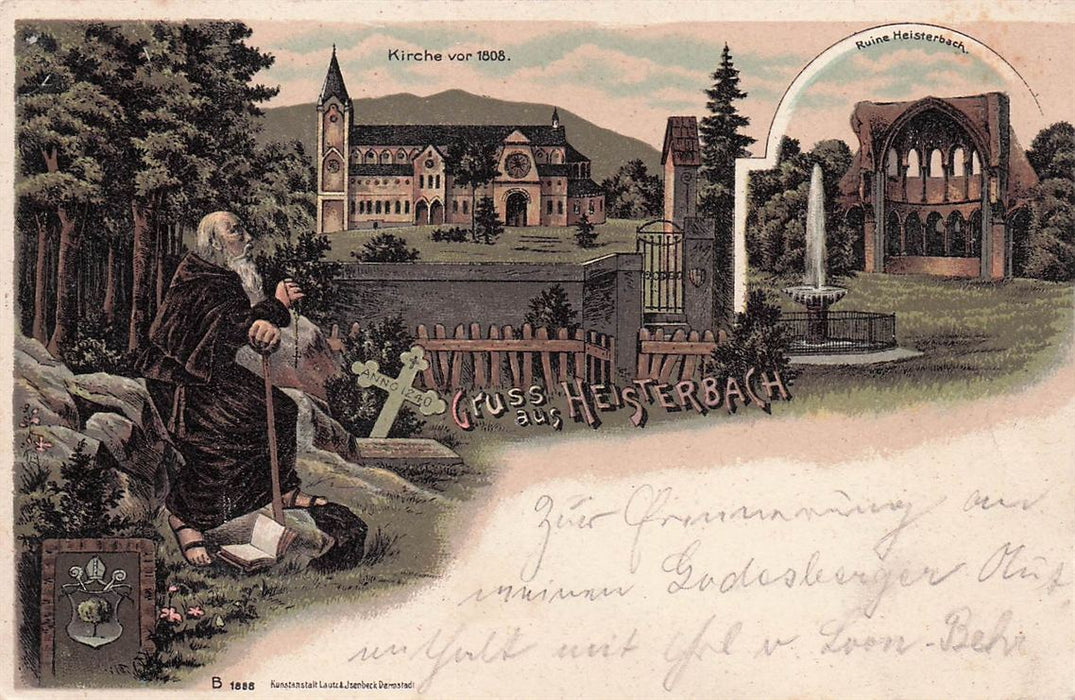 Kirche vor 1808.
Ruine Heisterbach.
ANNO 1240
Gruss
aus HEISTERBACH
Zur Erinnerung an
meinen Godesberger Auf
enthalt mit v. Loon-Behr
B 1888 Kunstanstalt Lautz & Isenbeck Darmstadt